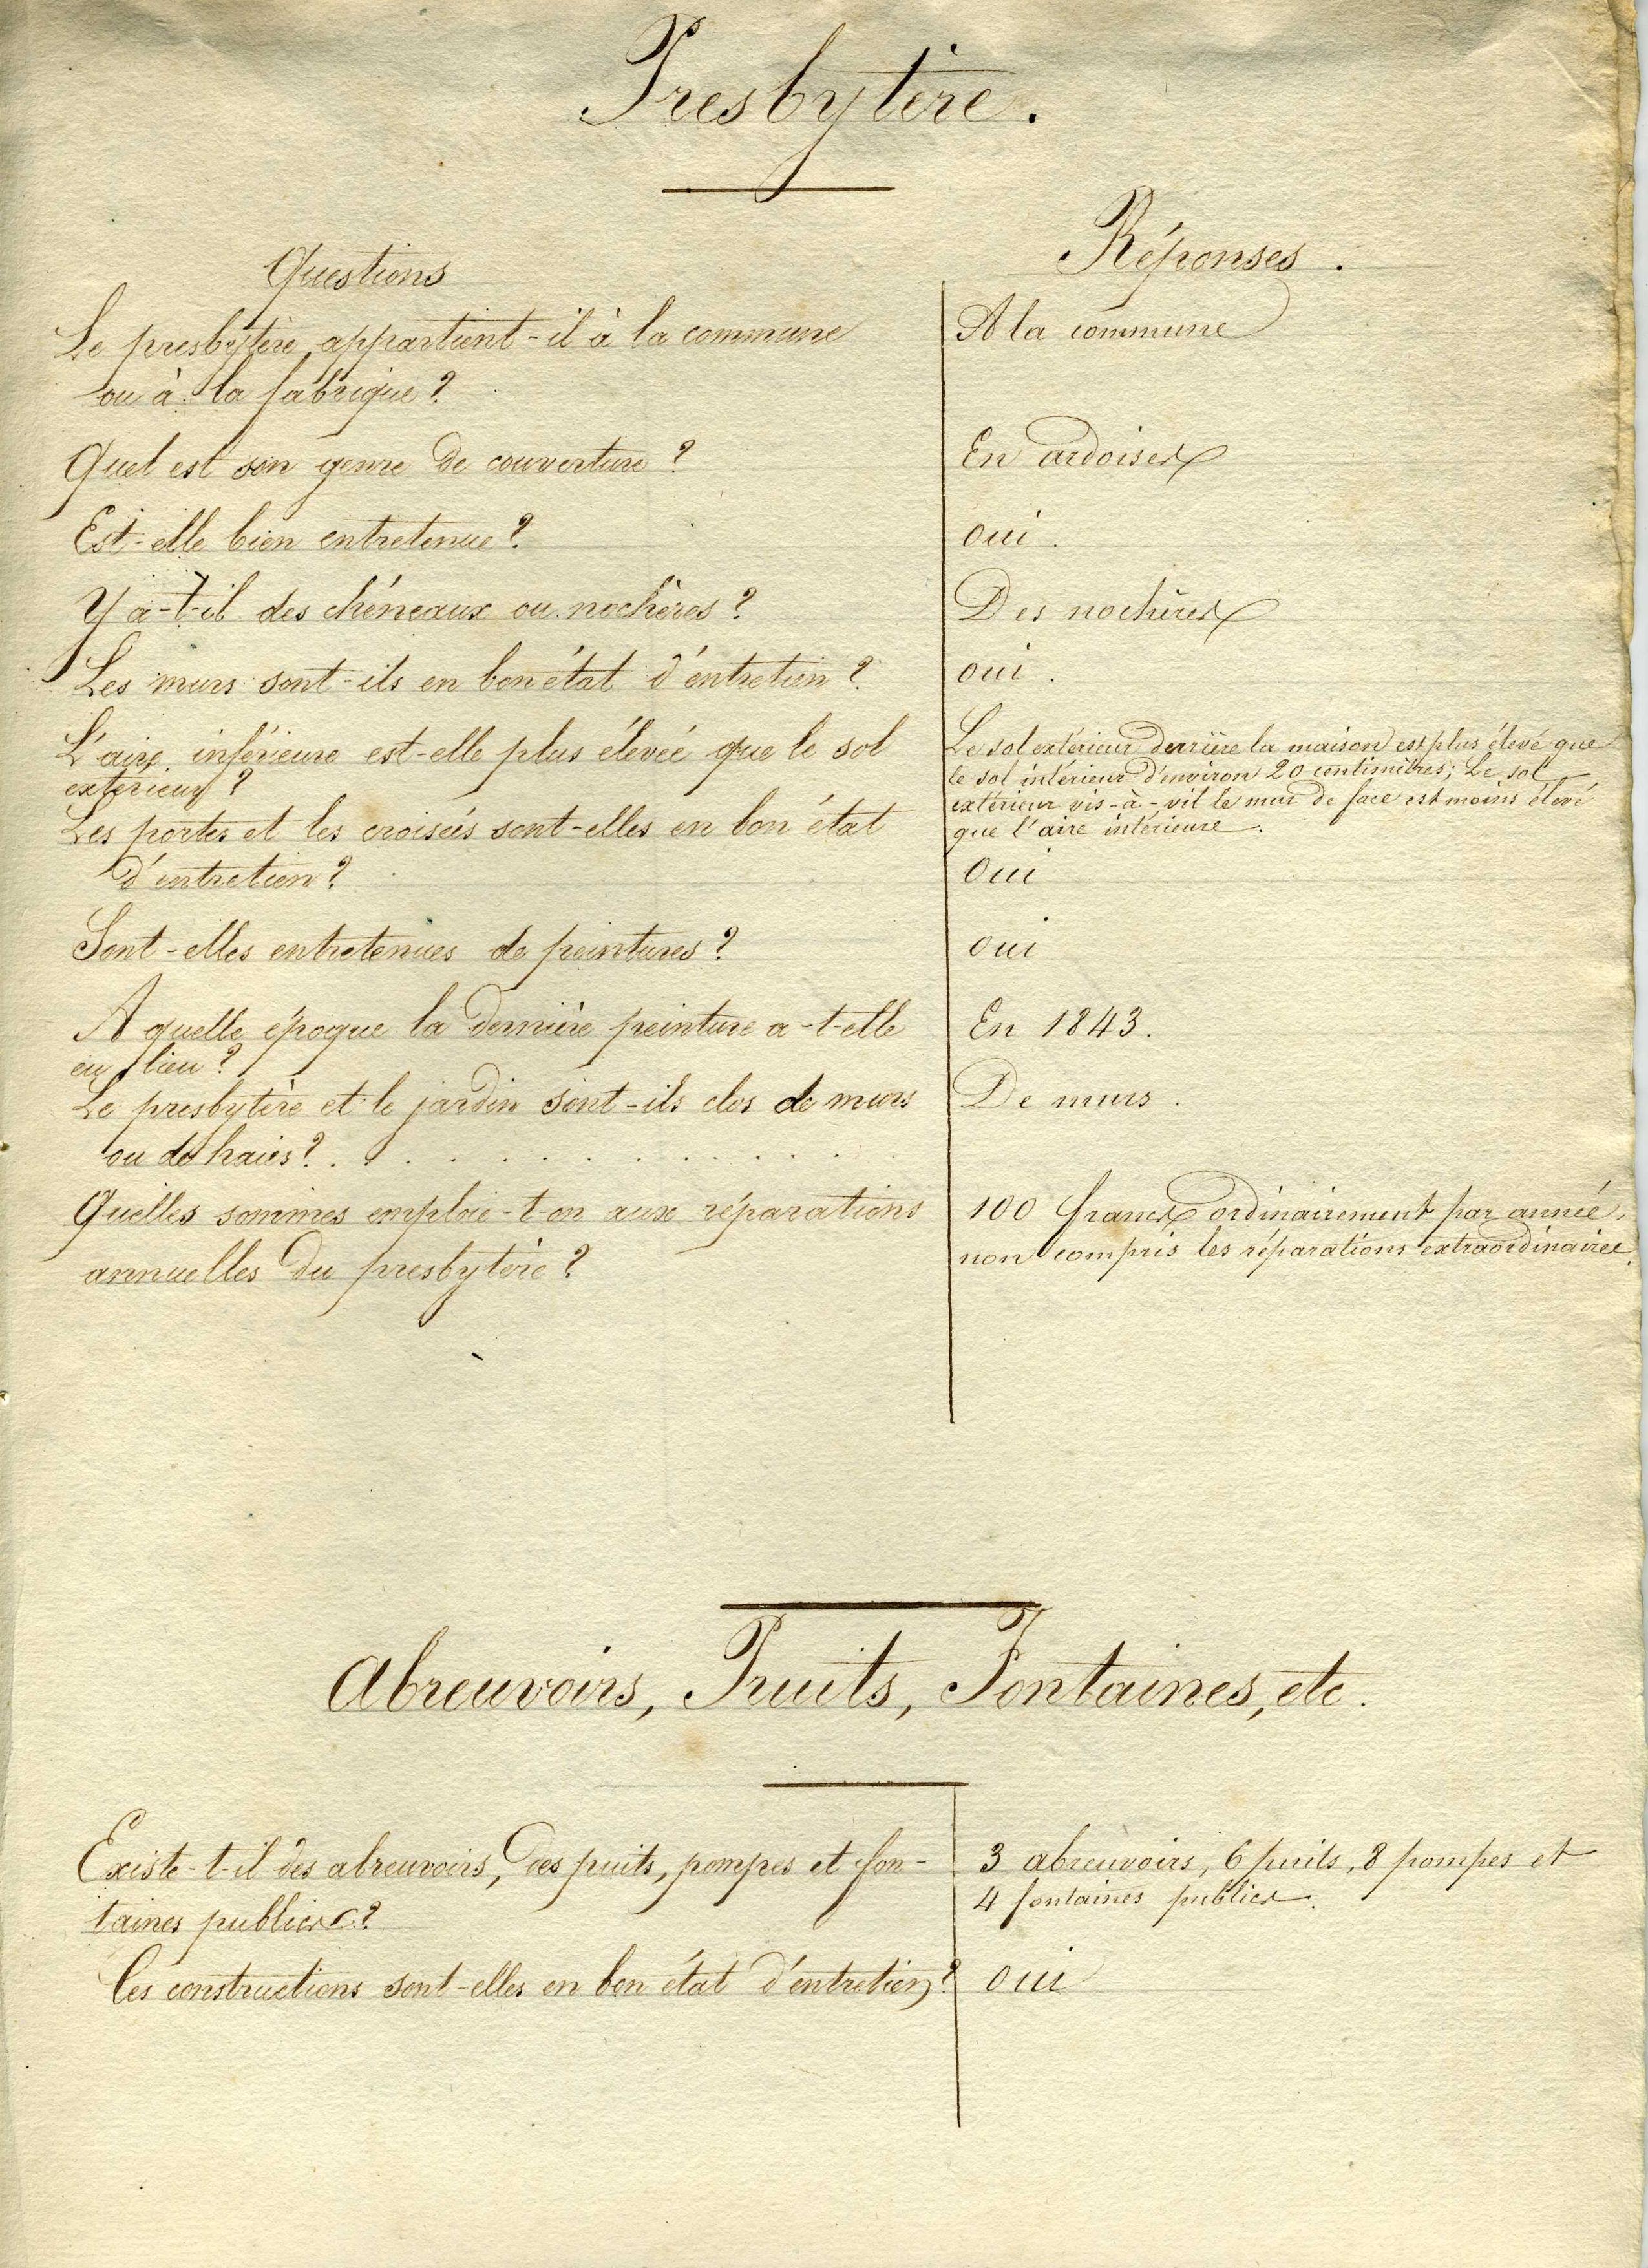 Presbytère.
Questions
Réponses.
Le presbytère appartient-il à la commune
ou à la fabrique?
A la commune
Quel est son genre de couverture?
En ardoises
Est-elle bien entretenue?
oui.
Y a-t-il des chéneaux ou nochères?
Des nochères
Les murs sont-ils en bon état d'entretien?
oui.
L'aire inférieure est-elle plus élevée que le sol
extérieur?
Le sol extérieur derrière la maison est plus élevé que
le sol intérieur d'environ 20 centimètres; Le sol
extérieur vis-à-vis le mur de face est moins élevé
que l'aire intérieure.
Les portes et les croisées sont-elles en bon état
d'entretien?
Oui
Sont-elles entretenues de peintures?
oui
A quelle époque la dernière peinture a-t-elle
eu lieu?
En 1843.
Le presbytère et le jardin sont-ils clos de murs
ou de haies? . . . . . . . . . . . .
De murs.
Quelles sommes emploie-t-on aux réparations
annuelles du presbytère?
100 francs ordinairement par année,
non compris les réparations extraordinaires.
Abreuvoirs, Puits, Fontaines, etc.
Existe-t-il des abreuvoirs, des puits, pompes et fon-
taines publics?
3 abreuvoirs, 6 puits, 8 pompes et
4 fontaines publics.
Ces constructions sont-elles en bon état d'entretien?
oui